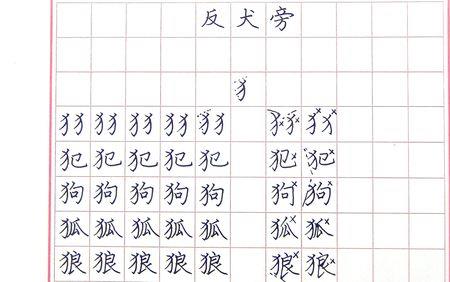 反犬旁
犭
犭犭 犭犭 犭犭 犭犭 犭犭 犭犭 犭犭
犯 犯 犯 犯 犯 犯 犯
狗 狗 狗 狗 狗 狗 狗
狐 狐 狐 狐 狐 狐 狐
狼 狼 狼 狼 狼 狼 狼